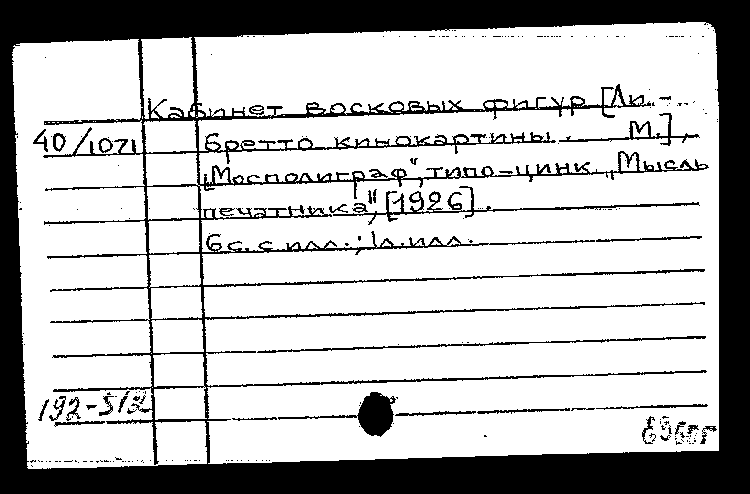 Кабинет восковых фигур [Ли-
40/1071 бретто кинокартины. М.],
"Мосполиграф", типо-цинк. "Мысль
печатника", [1926].
6 с. с илл.; 1 л. илл.
192-512